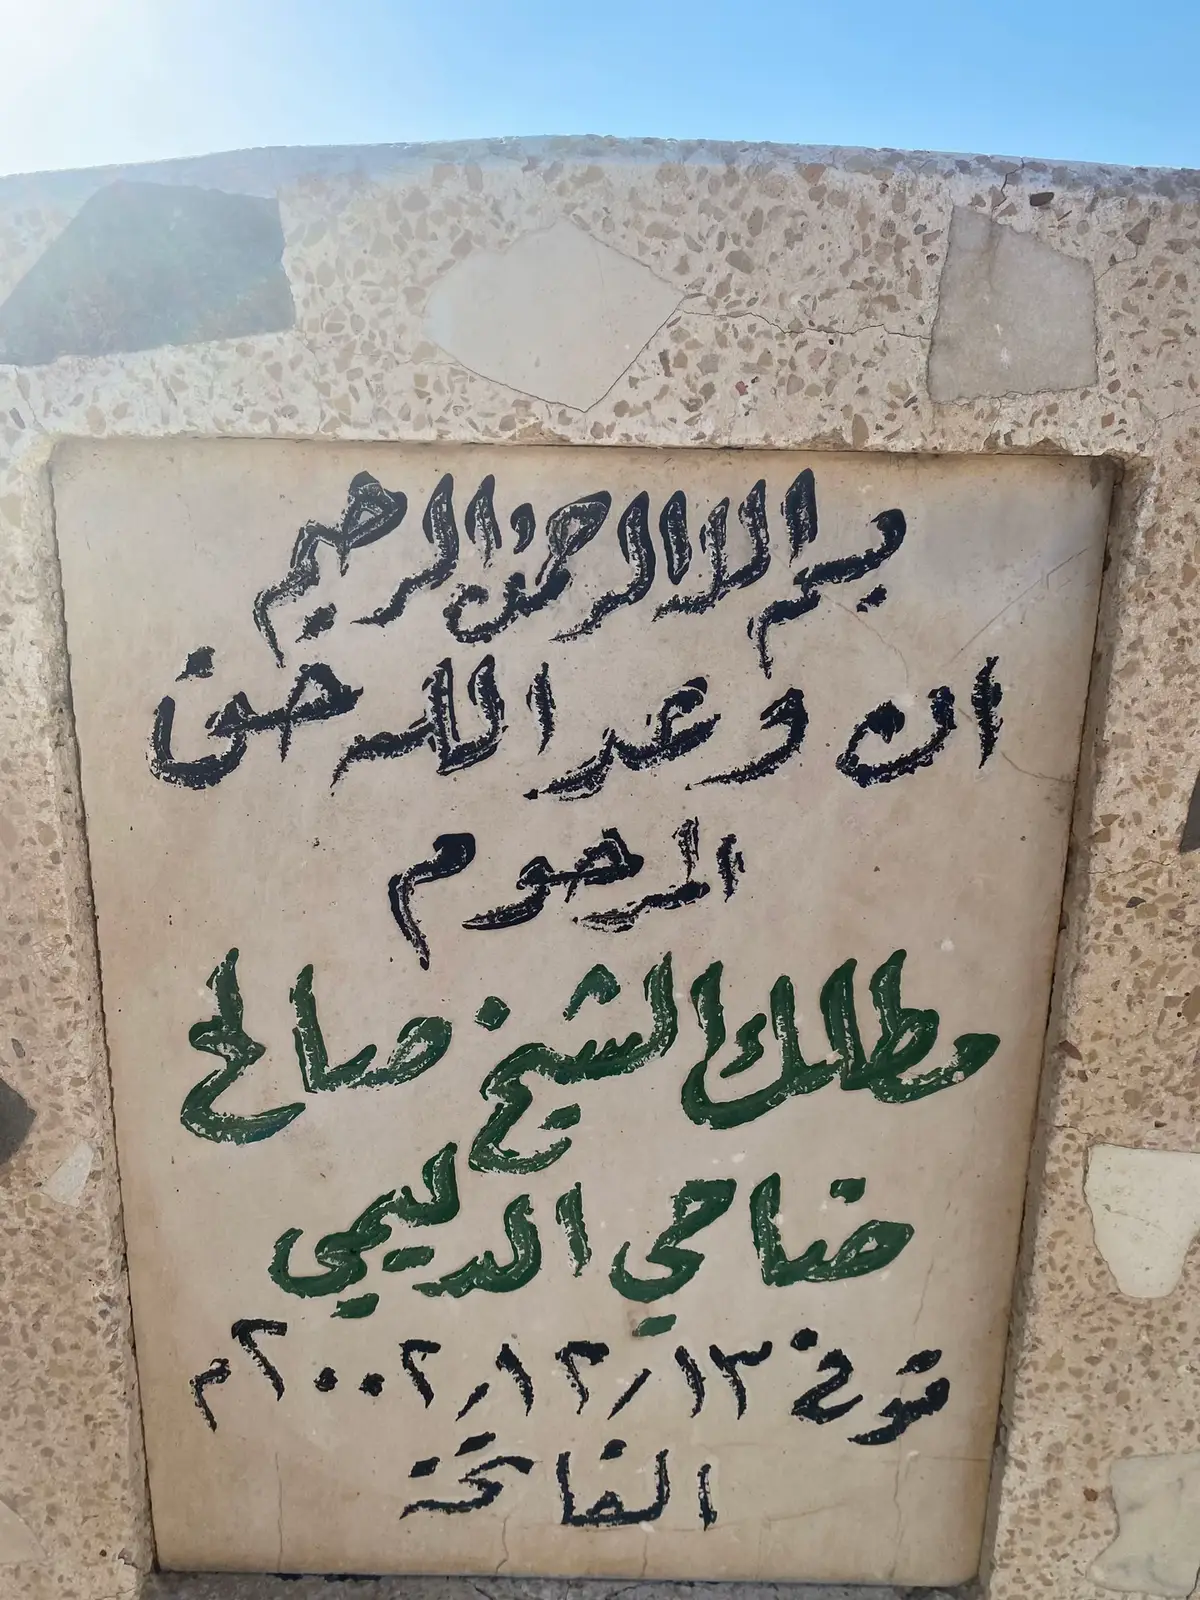 بسم الله الرحمن الرحيم
ان وعد الله حق
المرحوم
مطلك الشيخ صالح
ضاحي الدليمي
توفى ١٣/١٢/٢٠٠٢م
الفاتحة